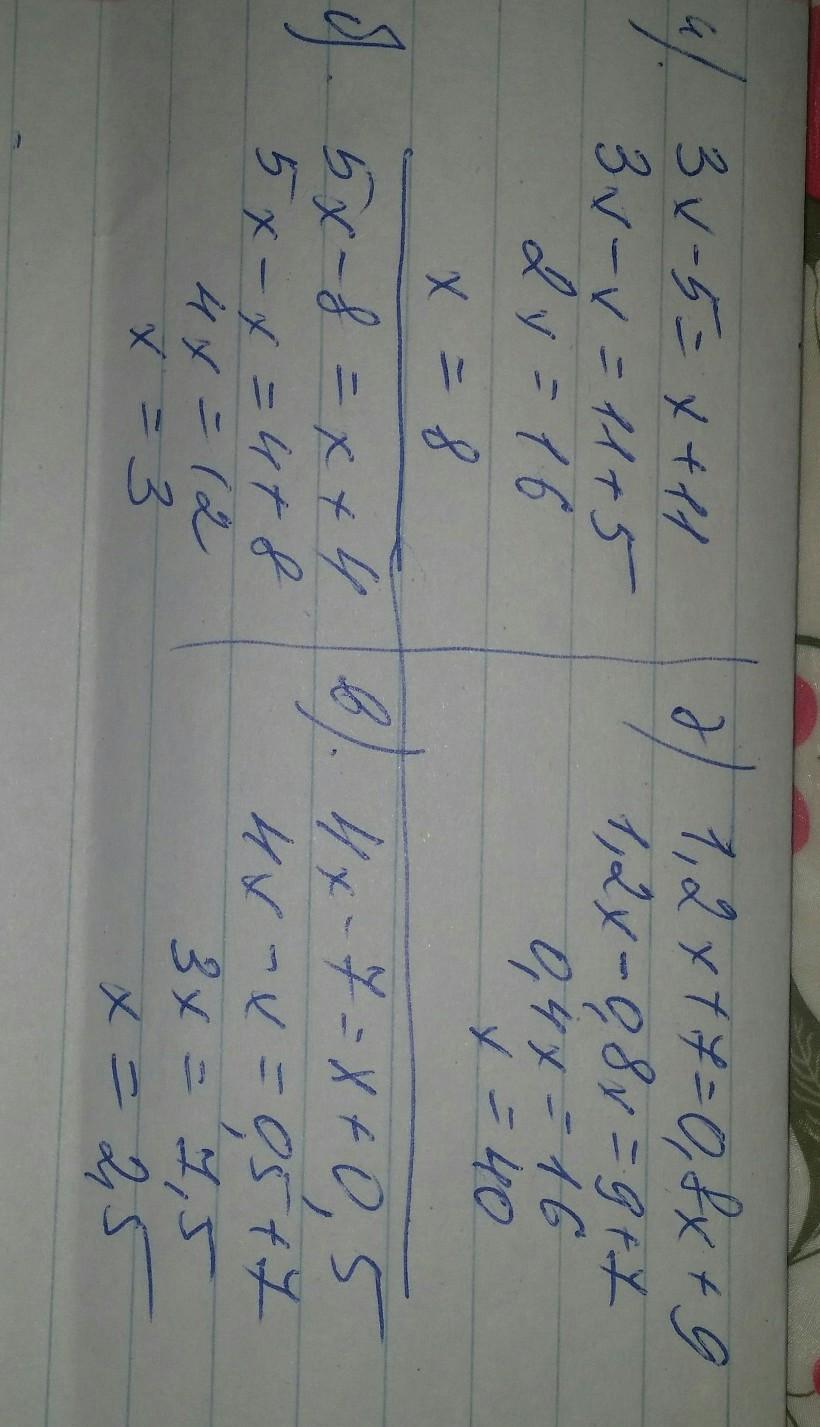 а). 3x-5=x+11
3x-x=11+5
2x=16
x=8
б). 5x-8=x+4
5x-x=4+8
4x=12
x=3
г) 1,2x+7=0,8x+9
1,2x-0,8x=9+7
0,4x=16
x=40
в). 4x-7=x+0,5
4x-x=0,5+7
3x=7,5
x=2,5